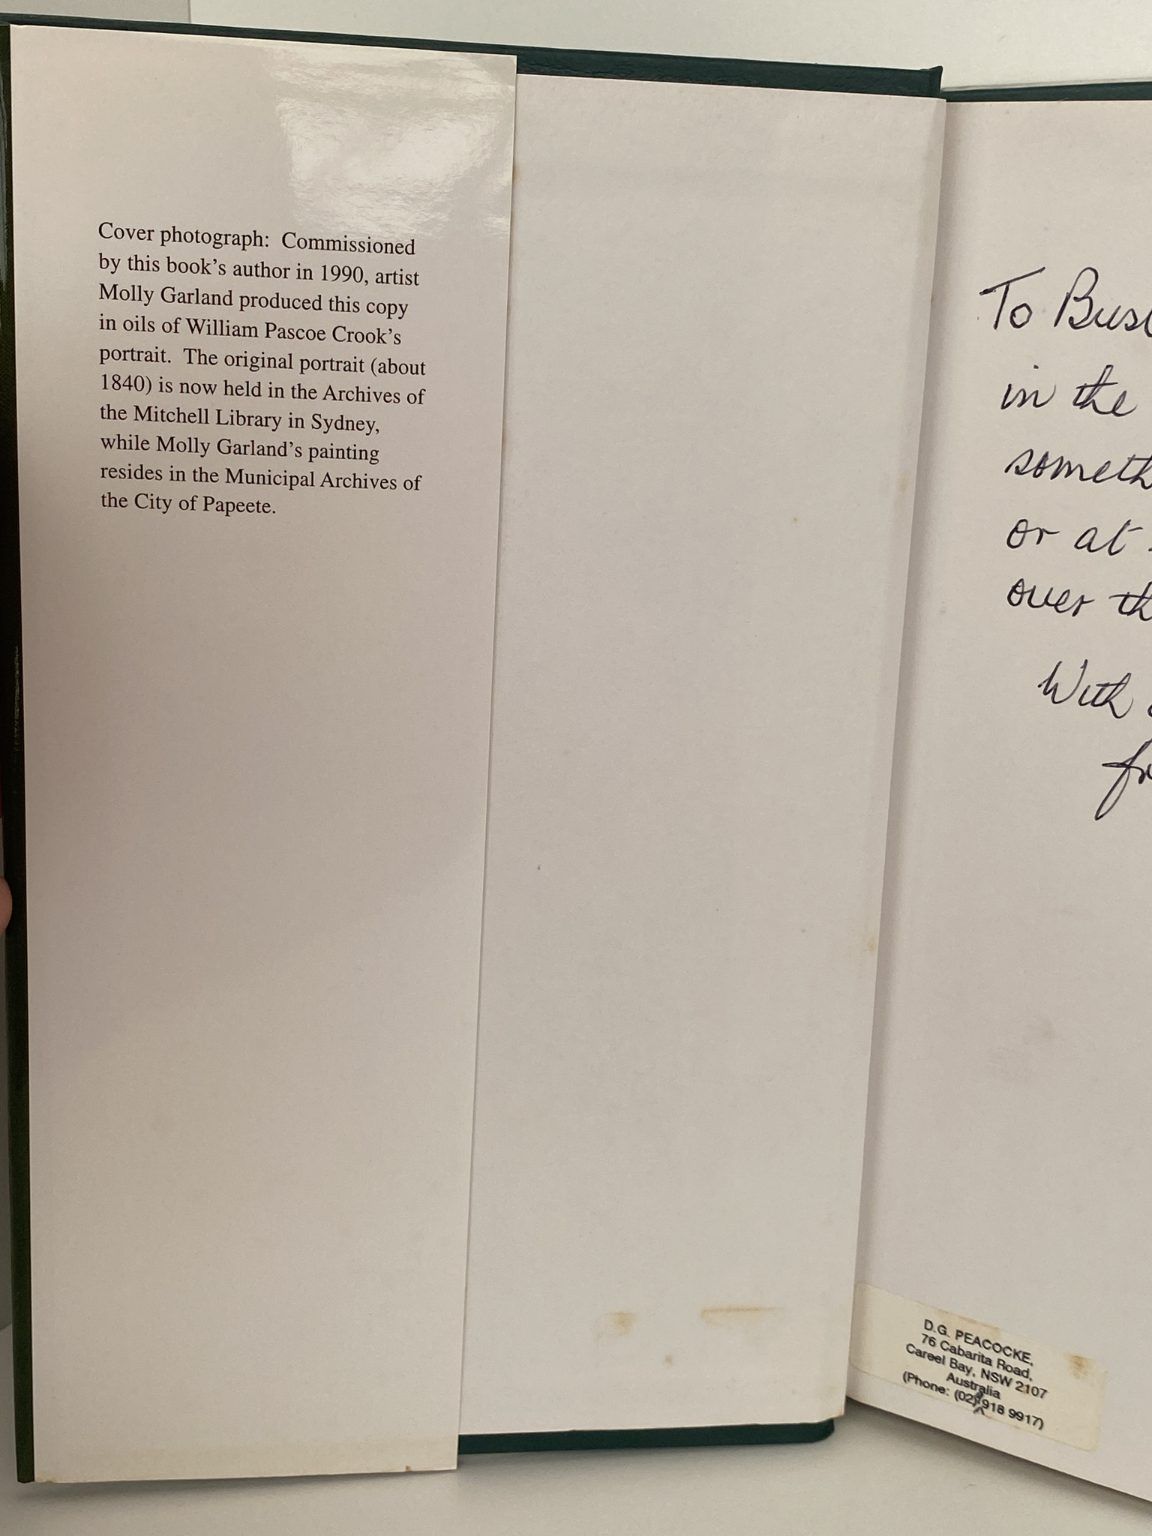 Cover photograph: Commissioned
by this book's author in 1990, artist
Molly Garland produced this copy
in oils of William Pascoe Crook's
portrait. The original portrait (about
1840) is now held in the Archives of
the Mitchell Library in Sydney,
while Molly Garland's painting
resides in the Municipal Archives of
the City of Papeete.
To
in the
or at
over
With
D.G. PEACOCKE,
76 Cabarita Road,
Careel Bay, NSW 2107
Australia
(Phone: (02) 918 9917)